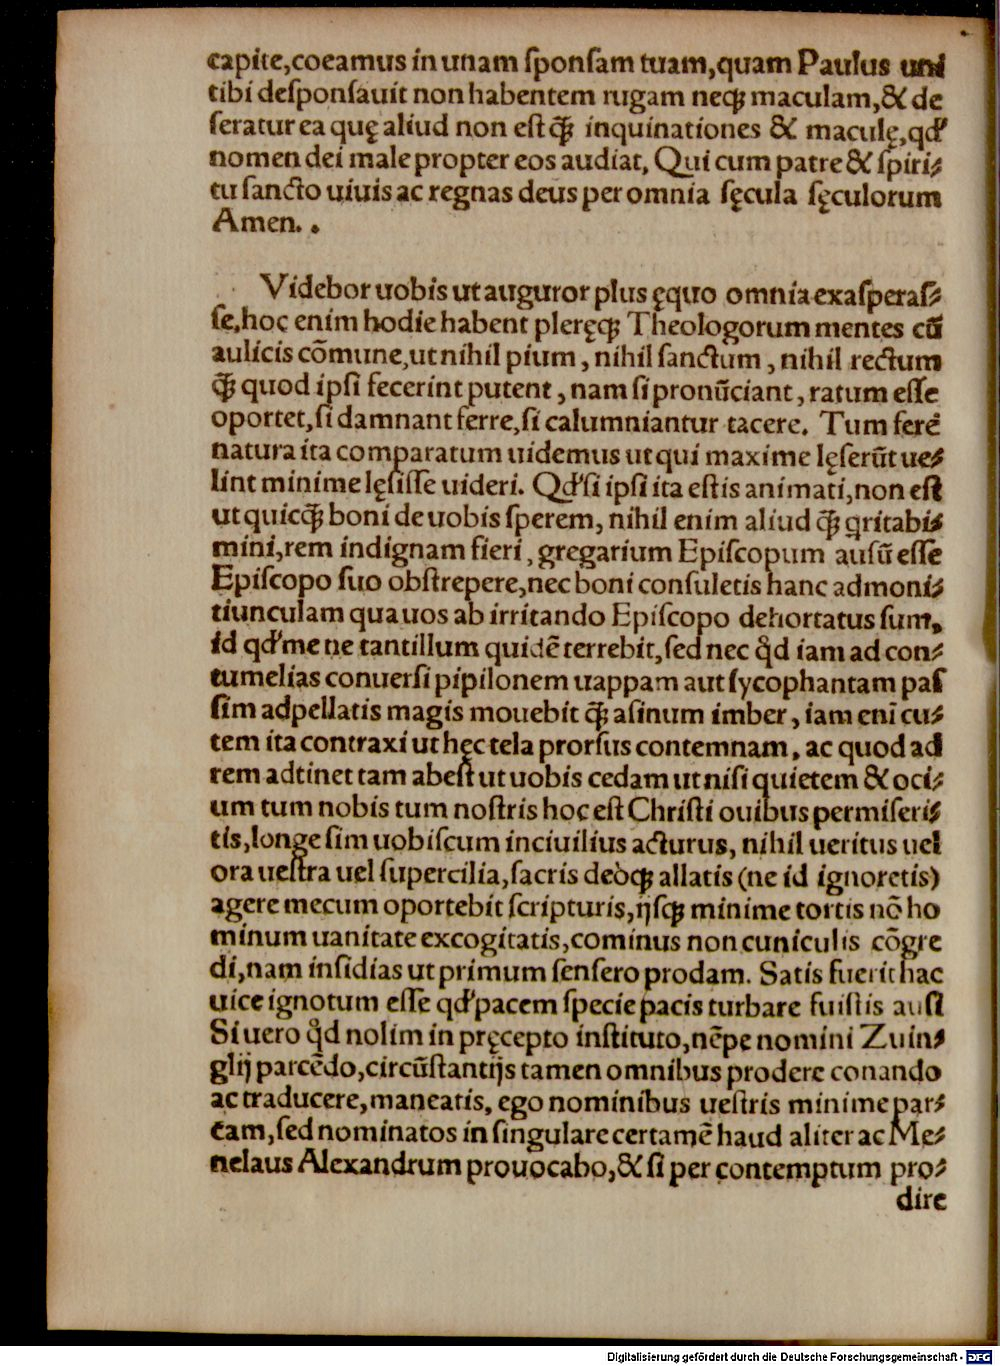 capite,coeamus in unam ſponſam tuam,quam Paulus uni
tibi deſponſauit non habentem rugam neqꝫ maculam,& de
ſeratur ea quę aliud non eſt q̃ꝫ inquinationes & maculę,qđ
nomen dei male propter eos audiat, Qui cum patre & ſpiri⸗
tu ſancto uiuis ac regnas deus per omnia ſęcula ſęculorum
Amen. .
Videbor uobis ut auguror plus ęquo omnia exaſperaſ⸗
ſe,hoc enim hodie habent pleręqꝫ Theologorum mentes cū
aulicis cōmune,ut nihil pium, nihil ſanctum, nihil rectum
q̃ꝫ quod ipſi fecerint putent, nam ſi pronūciant, ratum eſſe
oportet,ſi damnant ferre,ſi calumniantur tacere. Tum ferè
natura ita comparatum uidemus ut qui maxime lęſerūt ue⸗
lint minime lęſiſſe uideri. Qđ ſi ipſi ita eſtis animati,non eſt
ut quicq̃ꝫ boni de uobis ſperem, nihil enim aliud q̃ꝫ q̃ritabi⸗
mini,rem indignam fieri, gregarium Epiſcopum auſū eſſe
Epiſcopo ſuo obſtrepere,nec boni conſuletis hanc admoni⸗
tiunculam qua uos ab irritando Epiſcopo dehortatus ſum,
id qđ me ne tantillum quidē terrebit, ſed nec q̊d iam ad con⸗
tumelias conuerſi pipilonem uappam aut ſycophantam paſ
ſim adpellatis magis mouebit q̃ꝫ aſinum imber, iam enī cu⸗
tem ita contraxi ut hęc tela prorſus contemnam, ac quod ad
rem adtinet tam abeſt ut uobis cedam ut niſi quietem & oci⸗
um tum nobis tum noſtris hoc eſt Chriſti ouibus permiſeri⸗
tis,longe ſim uobiſcum inciuilius acturus, nihil ueritus uel
ora ueſtra uel ſupercilia,ſacris deòqꝫ allatis (ne id ignoretis)
agere mecum oportebit ſcripturis,ijſqꝫ minime tortis nō ho
minum uanitate excogitatis,cominus non cuniculis cōgre
di,nam inſidias ut primum ſenſero prodam. Satis fuerit hac
uice ignotum eſſe qđ pacem ſpecie pacis turbare fuiſtis auſi
Si uero q̊d nolim in pręcepto inſtituto,nēpe nomini Zuin⸗
glij parcēdo,circūſtantijs tamen omnibus prodere conando
ac traducere,maneatis, ego nominibus ueſtris minime par⸗
cam,ſed nominatos in ſingulare certamē haud aliter ac Me⸗
nelaus Alexandrum prouocabo,& ſi per contemptum pro⸗
dire
Digitalisierung gefördert durch die Deutsche Forschungsgemeinschaft - DFG